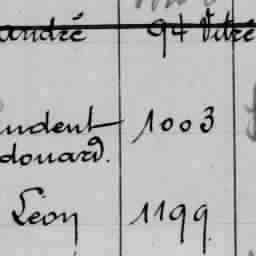 andré 94 Vitré
udent 1003
douard.
Léon 1199